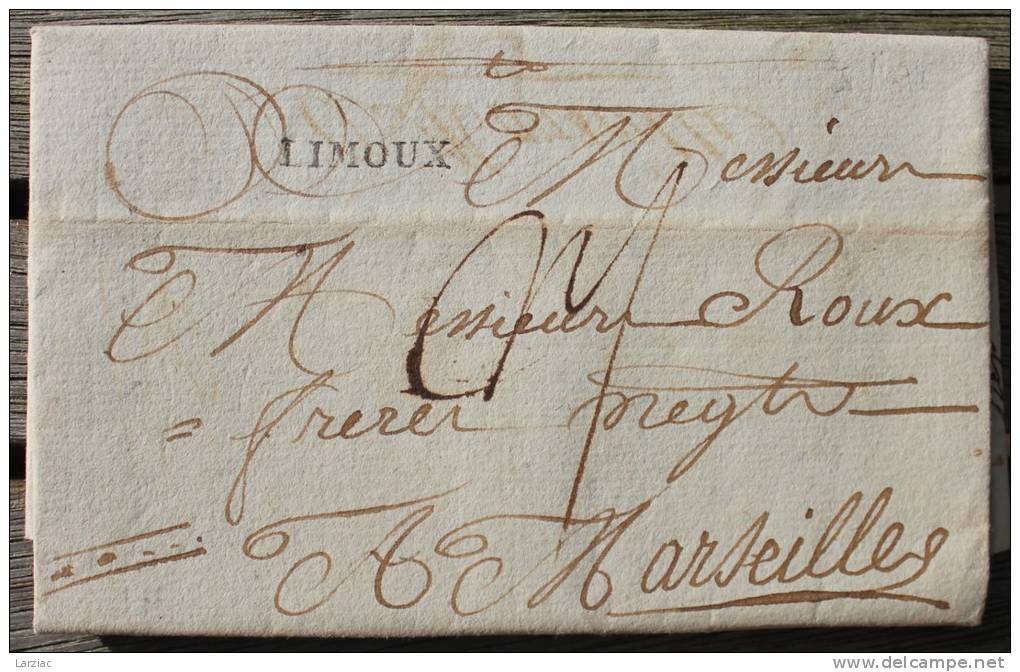 LIMOUX
Messieurs
Messieurs Roux
freres negts
A Marseille
Larziac
www.delcampe.net